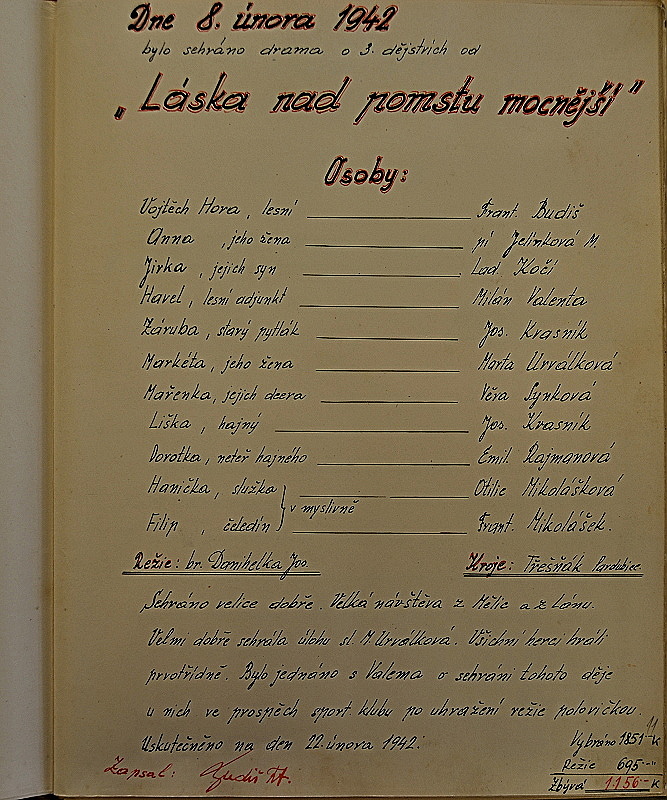 Dne 8. února 1942
bylo sehráno drama o 3. dějstvích od
„Láska nad pomstu mocnější"
Osoby:
Vojtěch Hora, lesní Frant. Budiš
Anna, jeho žena pí Jelínková M.
Jirka, jejich syn Lad. Kočí
Havel, lesní adjunkt Milán Valenta
Záruba, starý pytlák Jos. Kvasnik
Markéta, jeho žena Marta Urválková
Mařenka, jejich dcera Věra Synková
Liška, hajný Jos. Kvasnik
Dorotka, neteř hajného Emil. Rajmanová
Hanička, služka Otilie Mikolášková
v myslivně
Filip, čeledín Frant. Mikolášek.
Režie: br. Danihelka Jos. Kroje: Třešňák Pardubice
Sehráno velice dobře. Velká návštěva z Mělic a z Lánu.
Velmi dobře sehrála úlohu sl. M. Urválková. Všichni herci hráli
prvotřídně. Bylo jednáno s Valema o sehrání tohoto děje
u nich ve prospěch sport klubu po uhražení režie polovičkou.
Uskutečněno na den 22. února 1942.
Vybráno 1851 K
Režie 695
Zbývá 1.156 K
Zapsal: Budiš Fr.